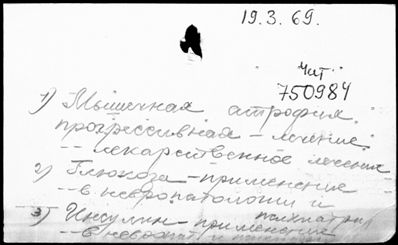 19.3.69.
"Чит"
750984
1) Мышечная атрофия,
прогрессивная - лечение.
-- лекарственное лечение
2) Глюкоза - применение
-- в невропатологии и
психиатрии
3) Инсулин - применение
-- в невропат и